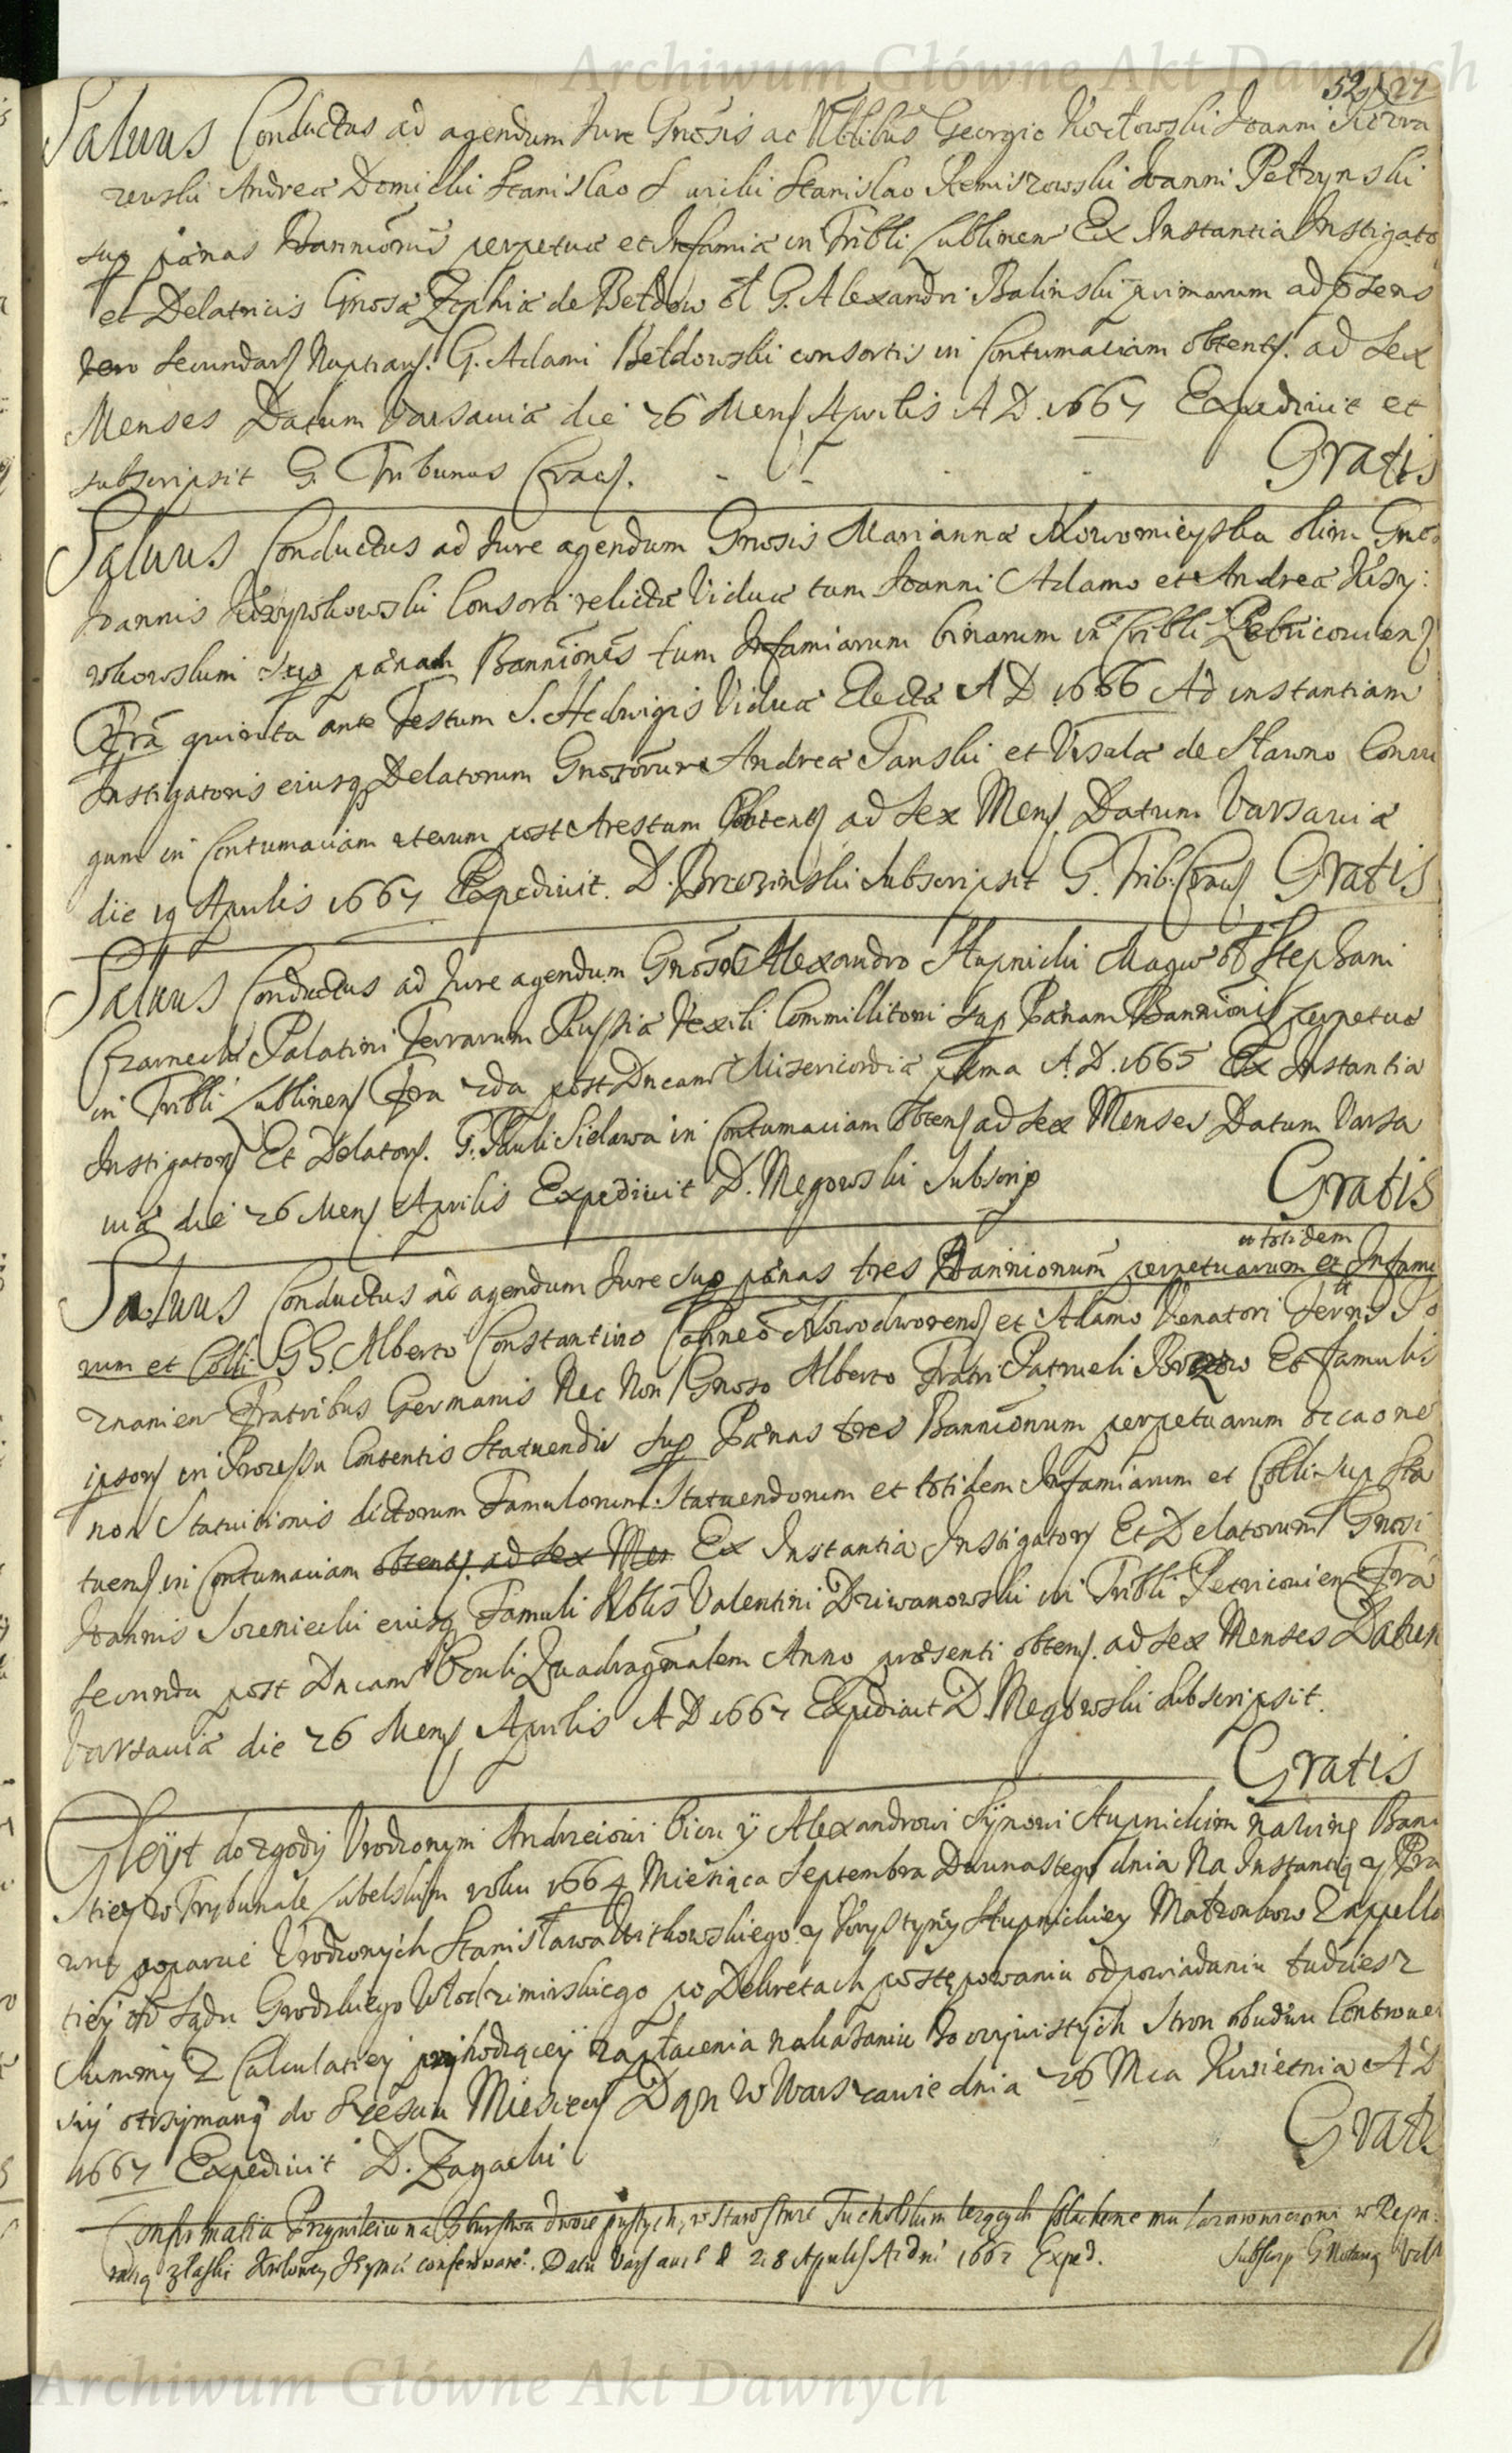 Archiwum Główne Akt Dawnych
52 27
Saluus Conductus ad agendum Jure Gnosis ac Nobilibus Georgio Koctowski Joanni
Andreæ Domicki Stanislao Stanislao Remiszowski Joanni Petrynski
sup pænas Bannionis perpetuæ et Infamiæ in Tribli Lublinen Ex Instantia Instigato
et Delatricis Gnosæ Zophiæ de Bełdow ol G. Alexandri Balinski primarum ad præsens
vero secundarum Nuptiarum G. Adami Bełdowski consortis in Contumaciam obtent. ad Sex
Menses Datum Varsaviæ die 26 Mens Aprilis A D. 1667 Expedivit et
subscripsit G. Tribunus Crac. Gratis
Saluus Conductus ad Jure agendum Gnosis Mariannæ Nowomieyska olim Gnosi
Joannis Krzywkowski Consorti relictæ Viduæ tum Joanni Adamo et Andreæ Krzy:
wkowskim sup pænam Bannionis tum Infamiarum binarum in Tribli Petricouien
Fria quinta ante Festum S. Hedwigis Viduæ Electæ A D 1666 Ad instantiam
Instigatoris eiusq Delatorum Gnosorum Andreæ Tanski et Vrsulæ de Stawno Coniu
gum in Contumaciam iterum post Arestum Obtent ad Sex Mens Datum Varsaviæ
die 19 Aprilis 1667 Expedivit. D. Brzozinski Subscripsit G. Trib. Crac Gratis
Saluus Conductus ad Jure agendum Gnoso Alexandro Stupnicki Magci ol Stephani
Czarnecki Palatini Terrarum Russiæ Vexilli Commillitoni sup Pænam Bannionis perpetuæ
in Tribli Lublinens Fria 2da post Dncam Misericordiæ A. D. 1665 Ex Instantia
Instigatoris Et Delatoris. G. Pauli Sielawa in Contumaciam Obtens ad Sex Menses Datum Varsa
uiæ die 26 Mens Aprilis Expedivit D. Megowski Subscrip Gratis
et totidem
Saluus Conductus ad agendum Jure sup pænas tres Bannionum perpetuarum et Infami
rum et Colli GG. Alberto Constantino Nowodworens et Adamo Venatori Terris Po
znanien Fratribus Germanis Nec Non Gnoso Alberto Fratri Patrueli Et Famulis
ipsorum in Processu Contentis Statuendis sup Pænas tres Bannionum perpetuarum occaone
non Statuitionis dictorum Famulorum Statuendorum et totidem Infamiarum et Colli sup Sta
tuens in Contumaciam obtent. ad Sex Mes Ex Instantia Instigatoris Et Delatorum Gnosi
Joannis Sozeniecki eiusq Famuli Nobilis Valentini Dziwanowski in Tribli Petricouien Fria
Secunda post Dncam Oculi Quadragmalem Anno præsenti obtens. ad Sex Menses Datum
Varsaviæ die 26 Mens Aprilis A D 1667 Expedivit D. Megowski Subscripsit.
Gratis
Gleÿt do zgody Vrodzonym Andrzeiowi Oicu ÿ Alexandrowi Synowi Stupnickim na winę Bani
tiey w Trybunale Lubelskim roku 1664 Miesiąca Septembra Dwunastego dnia Na Instantią y Pra
wne poparcie Vrodzonych Stanisława Witkowskiego y Krystyny Stupnickiey Małzonkow Z appella
tiey od Sądu Grodzkiego Włodzimirskiego po Dekretach postępowaniu odpowiadaniu tudziesz
Summy Z Calculatiey przychodzącey zapłacenia nakazaniu do oczywistych Stron obudwu Controuer
siy otrzymaną do Szesciu Miesięcy Dan w Warszawie dnia 26 Mca Kwietnia A D
1667 Expedivit D. Zagacki Grati
Confirmatia Przywileiu na dwoie pustych, w Starostwie Tucholskim lezących
z łaski Krolowey Jeymci conferowane. Datu Varsauiæ d 28 Aprilis A. Dni 1667 Exped. Subscrip
Archiwum Główne Akt Dawnych